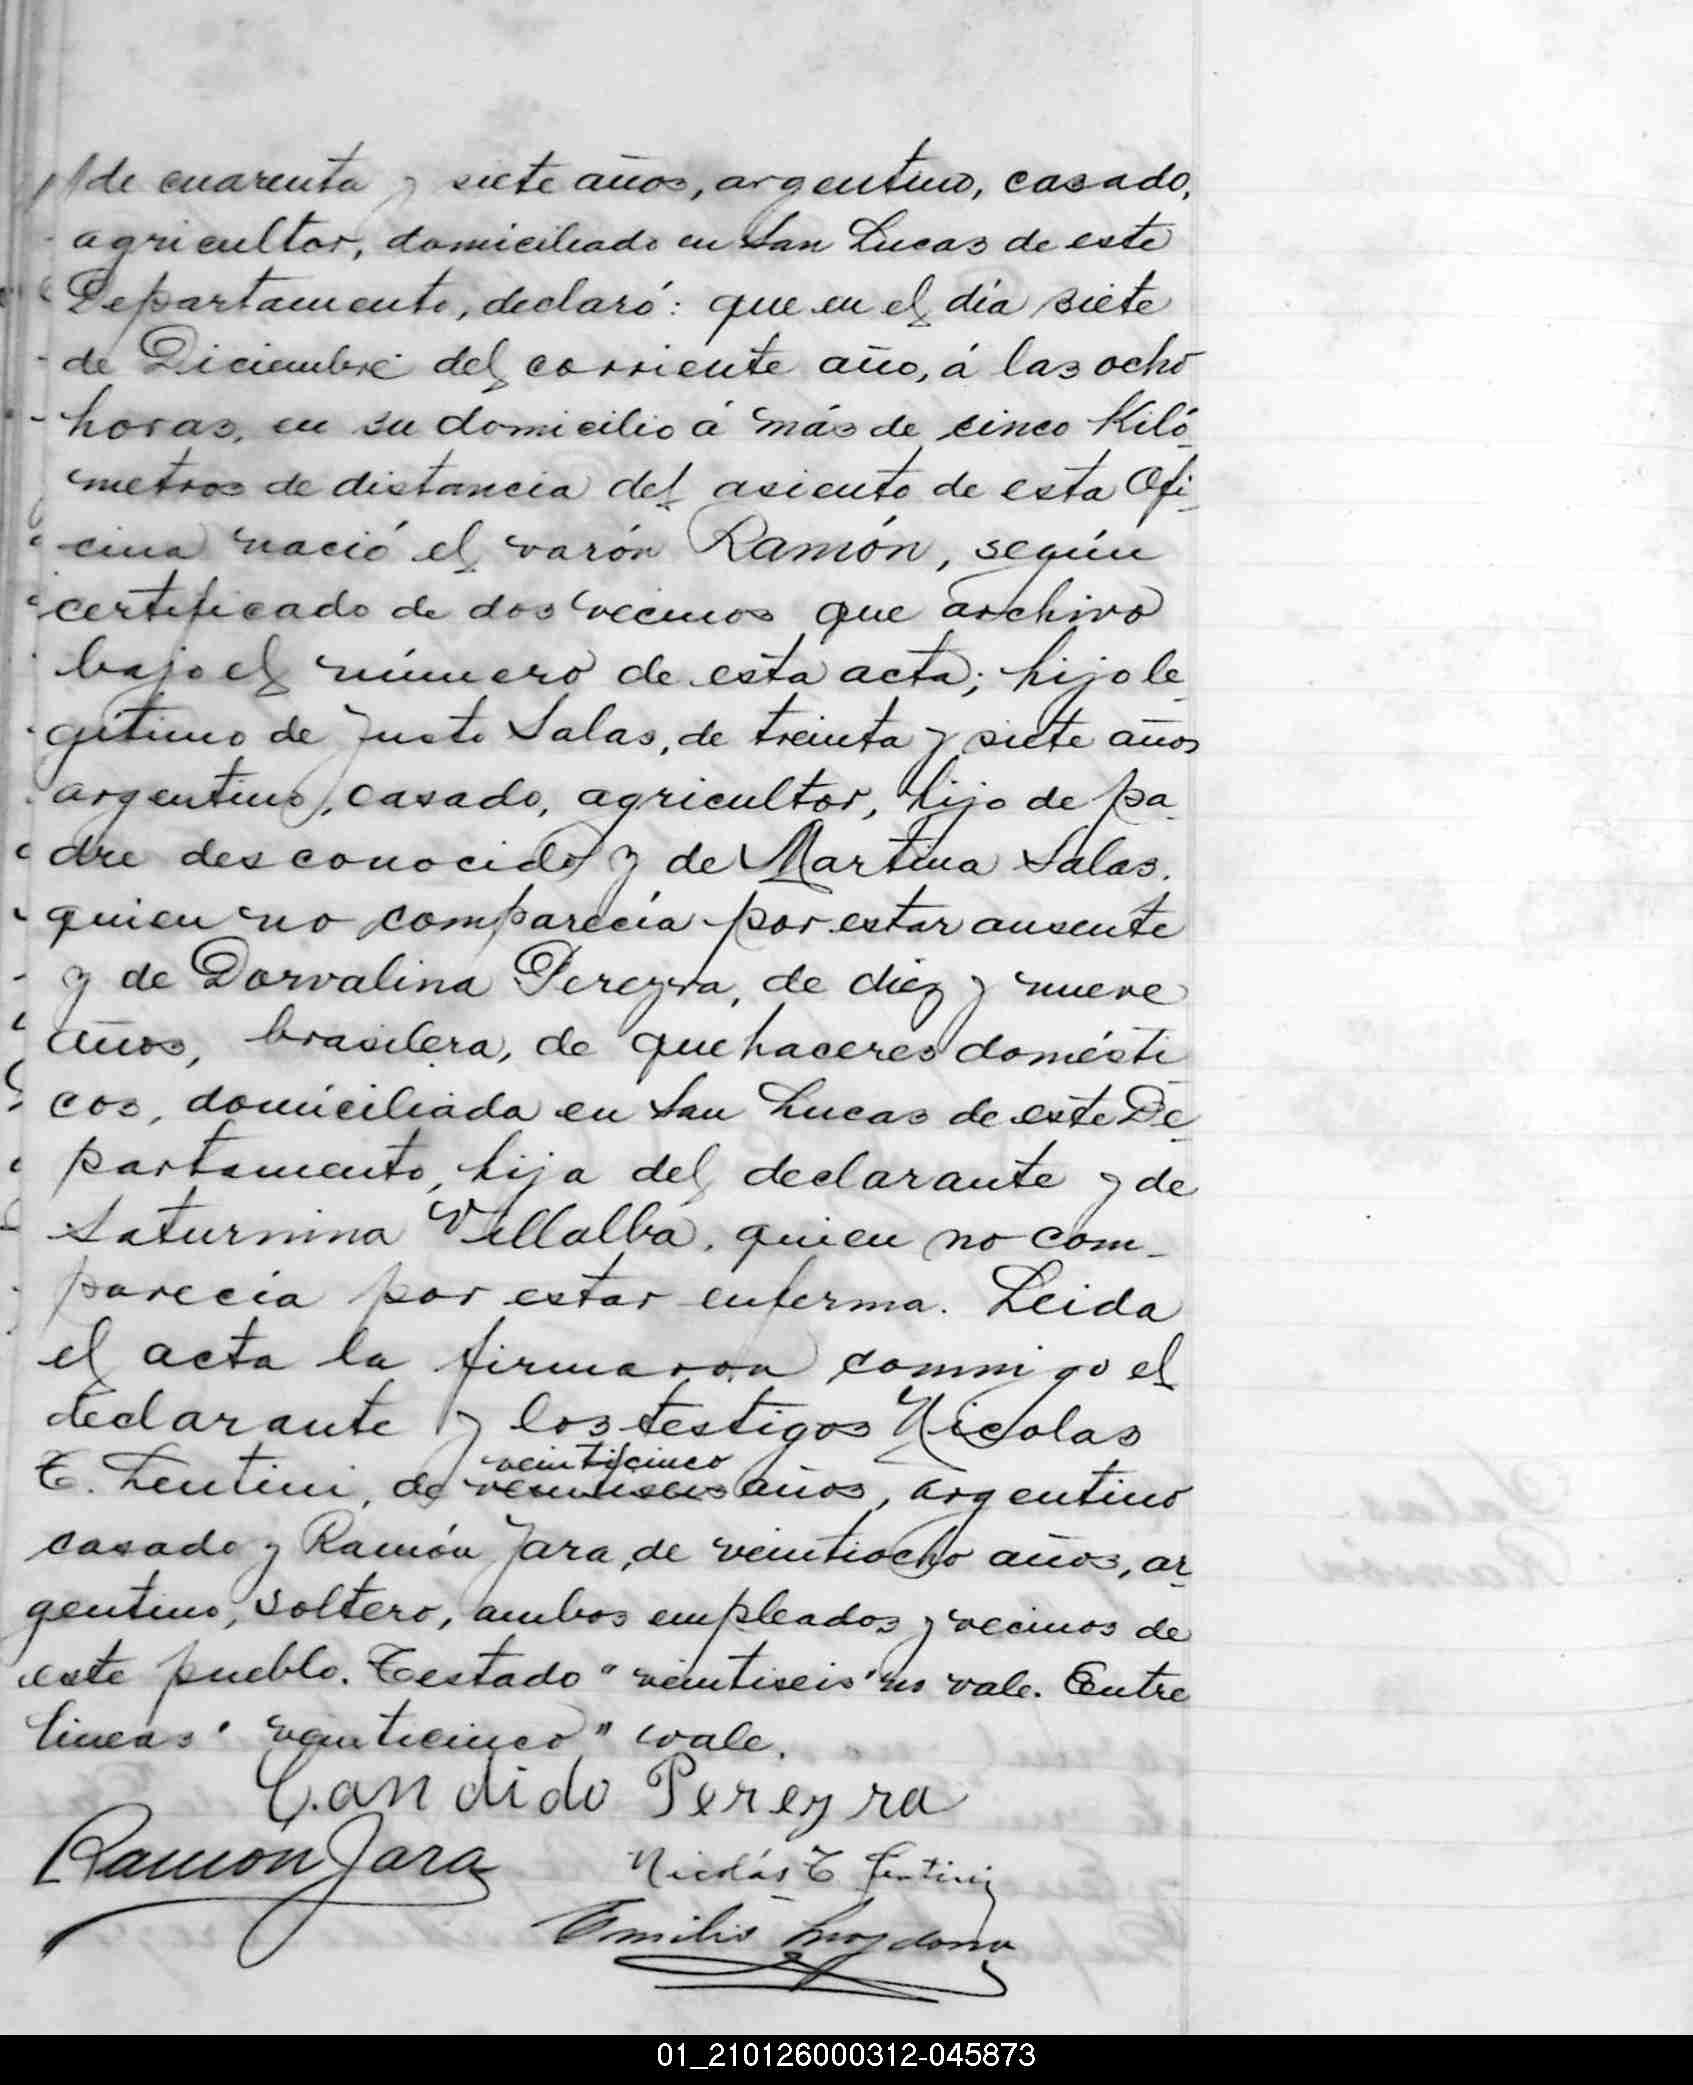 de cuarenta y siete años, argentino, casado,
agricultor, domiciliado en San Lucas de este
Departamento, declaró: que en el día siete
de Diciembre del corriente año, á las ocho
horas, en su domicilio á más de cinco Kiló-
metros de distancia del asiento de esta Ofi-
cina nació el varón Ramón, según
certificado de dos vecinos que archivo
bajo el número de esta acta; hijo le-
gítimo de Justo Salas, de treinta y siete años
argentino, casado, agricultor, hijo de pa-
dre desconocido y de Martina Salas.
quien no comparecía por estar ausente
y de Dorvalina Pereyra, de diez y nueve
años, brasilera, de quehaceres domésti
cos, domiciliada en San Lucas de este De-
partamento, hija del declarante y de
Saturnina Villalba, quien no com-
parecía por estar enferma. Leida
el acta la firmaron conmigo el
declarante y los testigos Nicolas
veinticinco
T. Lentini, de veintiseis años, argentino
casado y Ramón Jara, de veintiocho años, ar-
gentino, soltero, ambos empleados y vecinos de
este pueblo. Testado "veintiseis" no vale. Entre
lineas "veinticinco" vale.
Candido Pereyra
Ramon Jara
Nicolás T Lentini
Emilio
01_210126000312-045873